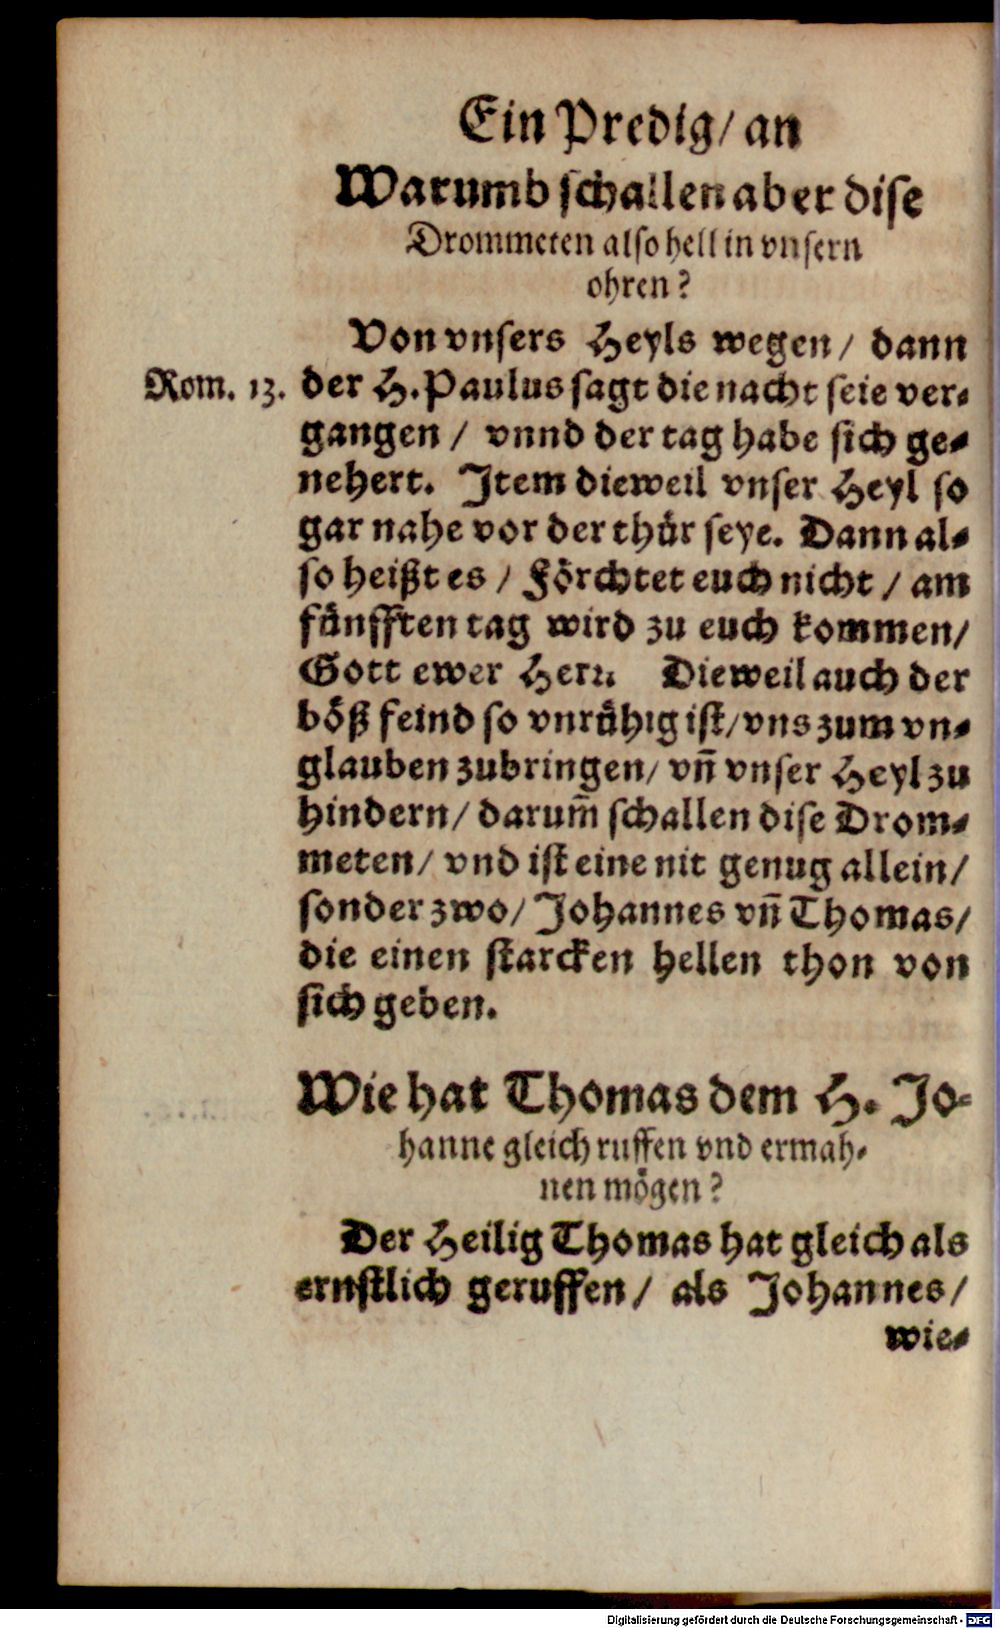 Ein Predig/ an
Warumb schallen aber dise
Drommeten also hell in vnsern
ohren?
Von vnsers Heyls wegen/ dann
Rom. 13. der H. Paulus sagt die nacht seie ver-
gangen / vnnd der tag habe sich ge-
nehert. Item dieweil vnser Heyl so
gar nahe vor der thür seye. Dann al-
so heißt es / Förchtet euch nicht / am
fünfften tag wird zu euch kommen/
Gott ewer Herr. Dieweil auch der
böß feind so vnrühig ist/ vns zum vn-
glauben zubringen/ vñ vnser Heyl zu
hindern/ darum̃ schallen dise Drom-
meten/ vnd ist eine nit genug allein/
sonder zwo/ Johannes vñ Thomas/
die einen starcken hellen thon von
sich geben.
Wie hat Thomas dem H. Jo-
hanne gleich ruffen vnd ermah-
nen mögen?
Der Heilig Thomas hat gleich als
ernstlich geruffen/ als Johannes/
wie-
Digitalisierung gefördert durch die Deutsche Forschungsgemeinschaft - DFG